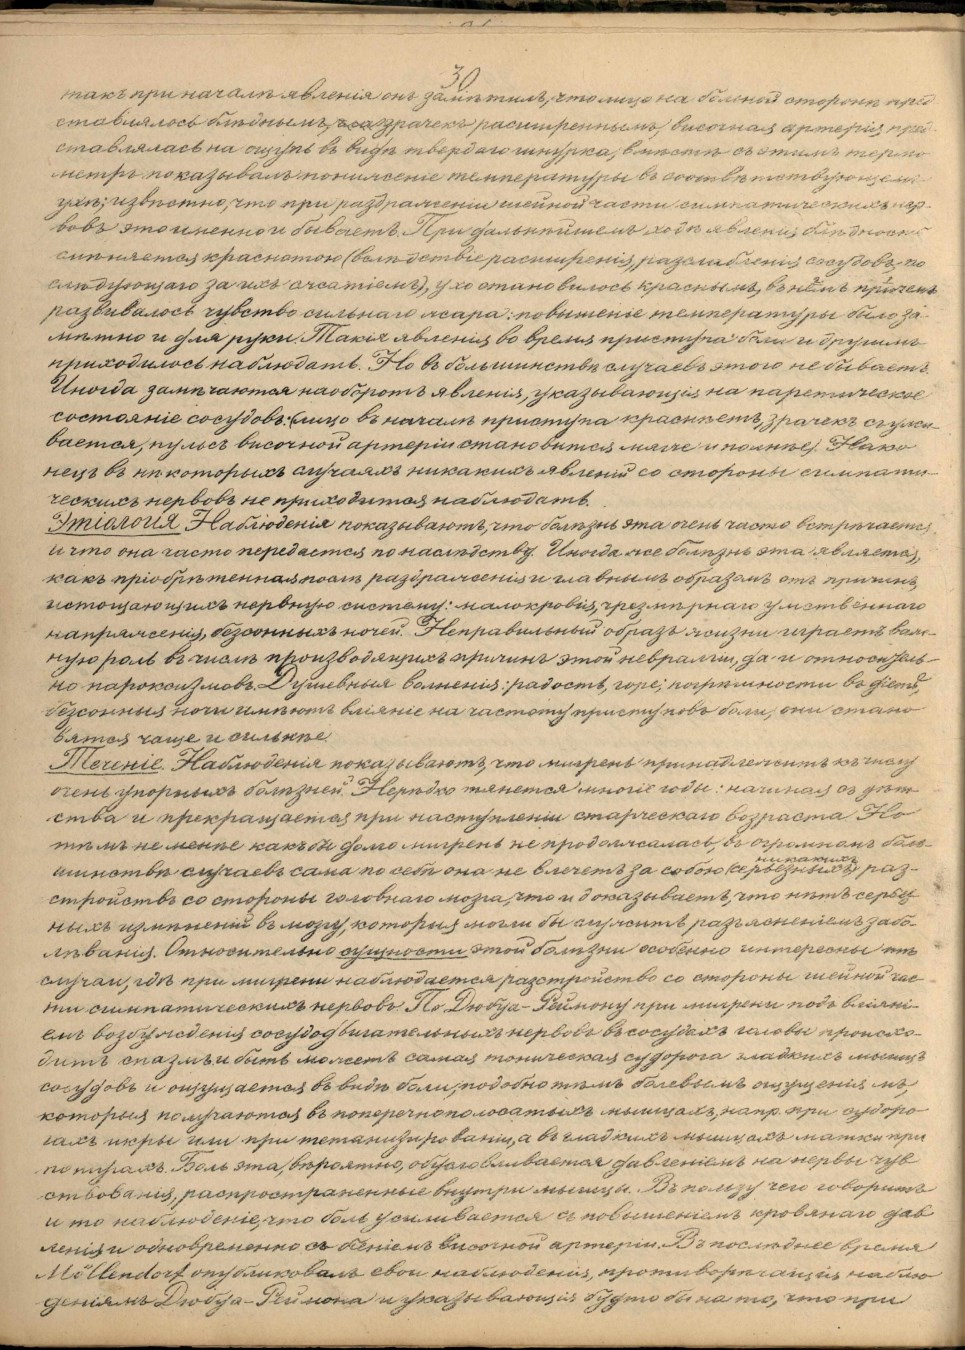 30
такъ при началѣ явленія онъ замѣтилъ, что лицо на больной сторонѣ пред
ставлялось блѣднымъ, зрачекъ расширеннымъ, височная артерія пред-
ставлялась на ощупь въ видѣ твердаго шнурка, вмѣстѣ съ этимъ термо
метръ показывалъ пониженіе температуры въ соотвѣтствующемъ
ухѣ; извѣстно, что при раздраженіи шейной части симпатическихъ нер-
вовъ это именно и бываетъ. При дальнѣйшемъ ходѣ явленія блѣдность
смѣняется краснотою (вслѣдствіе расширенія, разслабленія сосудовъ, по
слѣдующаго за ихъ сжатіемъ), ухо становилось краснымъ, въ немъ причемъ
развивалось чувство сильнаго жара: повышеніе температуры было за
мѣтно и для руки. Такія явленія во время приступа боли и другимъ
приходилось наблюдать. Но въ большинствѣ случаевъ этого не бываетъ.
Иногда замѣчаются наоборотъ явленія, указывающія на паретическое
состояніе сосудовъ: (лицо въ началѣ приступа краснѣетъ, зрачекъ съужи-
вается, пульсъ височной артеріи становится мягче и полнѣе). Нако
нецъ въ нѣкоторыхъ случаяхъ никакихъ явленій со стороны симпати-
ческихъ нервовъ не приходится наблюдать.
Этіологія Наблюденія показываютъ, что болѣзнь эта очень часто встрѣчается,
и что она часто передается по наслѣдству. Иногда же болѣзнь эта является,
какъ пріобрѣтенная послѣ раздраженія и главнымъ образомъ отъ причинъ,
истощающихъ нервную систему: малокровія, чрезмѣрнаго умственнаго
напряженія, безсонныхъ ночей. Неправильный образъ жизни играетъ важ-
ную роль въ числѣ производящихъ причинъ этой невралгіи, да и относитель-
но пароксизмовъ. Душевныя волненія: радость, горе; погрѣшности въ діетѣ,
безсонныя ночи имѣютъ вліяніе на частоту приступовъ боли, они стано
вятся чаще и сильнѣе.
Теченіе. Наблюденія показываютъ, что мигрень принадлежитъ къ числу
очень упорныхъ болѣзней. Нерѣдко тянется многіе годы: начиная съ дѣт-
ства и прекращается при наступленіи старческаго возраста. Но
тѣмъ не менѣе какъ бы долго мигрень не продолжалась, въ огромномъ боль-
шинствѣ случаевъ сама по себѣ она не влечетъ за собою никакихъ (серьезныхъ) раз-
стройствъ со стороны головнаго мозга, что и доказываетъ, что нѣтъ серьез
ныхъ измѣненій въ мозгу, которыя могли бы служить разъясненіемъ забо-
лѣванія. Относительно сущности этой болѣзни особенно интересны тѣ
случаи, гдѣ при мигрени наблюдается разстройство со стороны шейной час-
ти симпатическихъ нервовъ. По Дюбуа-Реймону при мигрени подъ вліяні-
емъ возбужденія сосудодвигательныхъ нервовъ въ сосудахъ головы происхо-
дитъ спазмъ и быть можетъ самая тоническая судорога гладкихъ мышцъ
сосудовъ и ощущается въ видѣ боли, подобно тѣмъ болевымъ ощущеніямъ,
которыя получаются въ поперечнополосатыхъ мышцахъ, напр. при судоро-
гахъ икры или при тетанизированіи, а въ гладкихъ мышцахъ матки при
потугахъ. Боль эта, вѣроятно, обусловливается давленіемъ на нервы чув
ствованія, распространенные внутри мышцы. Въ пользу чего говоритъ
и то наблюденіе, что боль усиливается съ повышеніемъ кровянаго дав
ленія и одновременно съ біеніемъ височной артеріи. Въ послѣднее время
Möllendorf опубликовалъ свои наблюденія, противорѣчащія наблю
деніямъ Дюбуа-Реймона и указывающія будто бы на то, что при